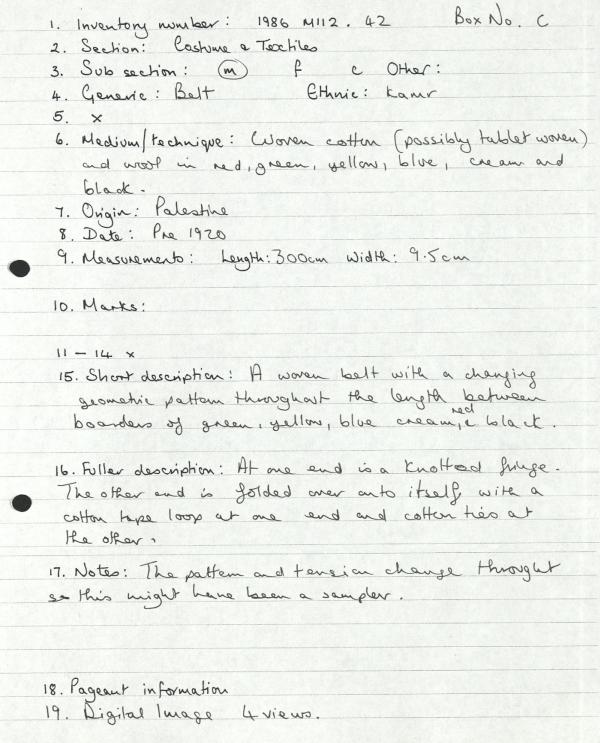 1. Inventory number: 1986 M112.42 Box No. C
2. Section: Costume & Textiles
3. Sub section: m f c Other:
4. Generic: Belt Ethnic: Kamr
5. x
6. Medium/technique: Woven cotton (possibly tablet woven)
and wool in red, green, yellow, blue, cream and
black.
7. Origin: Palestine
8. Date: Pre 1920
9. Measurements: Length: 300cm Width: 9.5cm
10. Marks:
11 - 14 x
15. Short description: A woven belt with a changing
geometric pattern throughout the length between
boarders of green, yellow, blue cream, red & black.
16. Fuller description: At one end is a knotted fringe.
The other end is folded over onto itself with a
cotton tape loop at one end and cotton ties at
the other.
17. Notes: The pattern and tension change throught
so this might have been a sampler.
18. Pageant information
19. Digital Image 4 views.